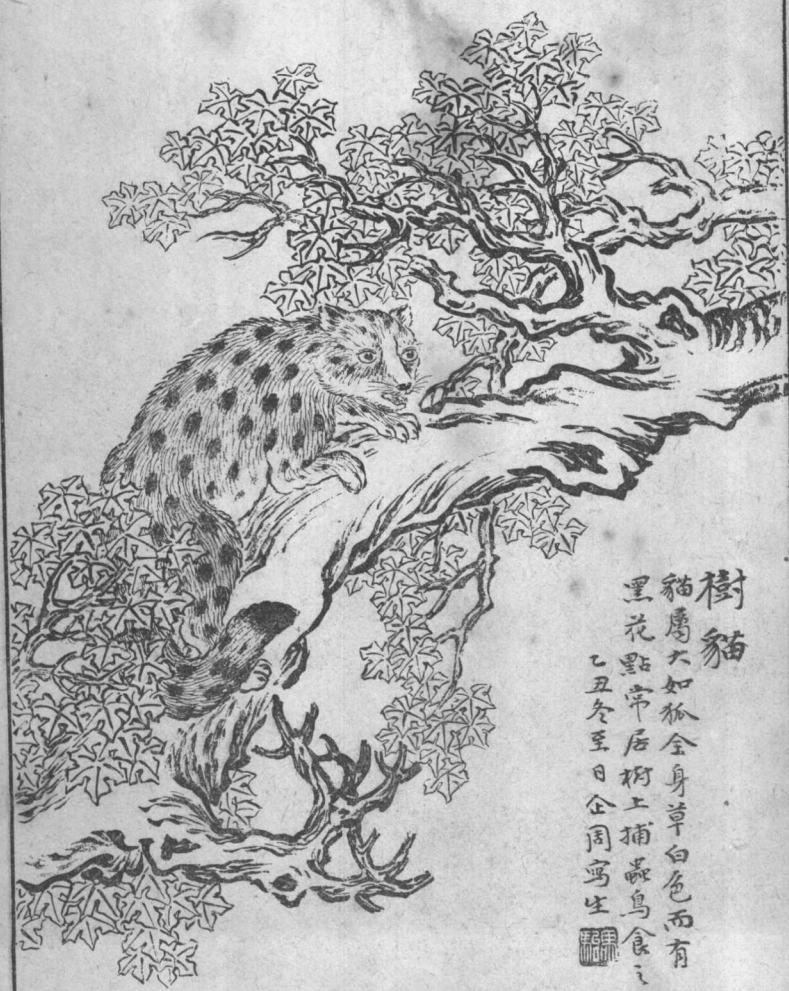 樹貓
貓屬大如狐全身草白色而有
黑花點常居樹上捕蟲鳥食之
乙丑冬至日企周寫生